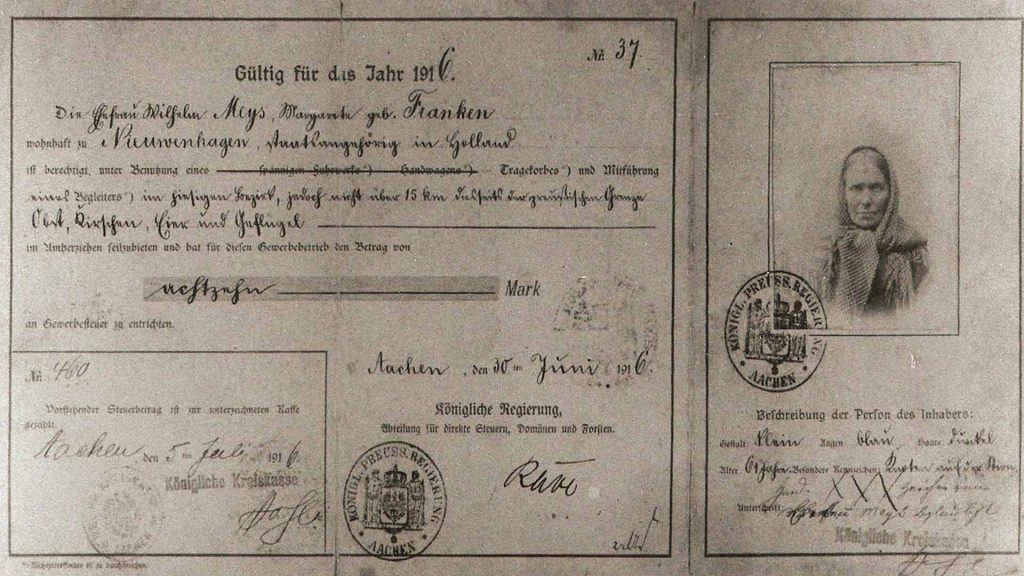 Nr. 37
Gültig für das Jahr 1916.
Die Ehefrau Wilhelm Meys, Margarete geb. Franken
wohnhaft zu Nieuwenhagen, staatsangehörig in Holland
ist berechtigt, unter Benutzung eines spännigen Fuhrwerks*) Handwagens*) Tragekorbes*) und Mitführung
eines Begleiters*) im hiesigen Bezirk, jedoch nicht über 15 km diesseits der preußischen Grenze
Obst, Kirschen, Eier und Geflügel
im Umherziehen feilzubieten und hat für diesen Gewerbebetrieb den Betrag von
achtzehn Mark
an Gewerbesteuer zu entrichten.
Nr. 460
Vorstehender Steuerbetrag ist zur unterzeichneten Kasse
gezahlt.
Aachen den 5ten Juli 1916.
Königliche Kreiskasse
Aachen, den 30ten Juni 1916.
Königliche Regierung,
Abteilung für direkte Steuern, Domänen und Forsten.
KÖNIGL. PREUSS. REGIERUNG
AACHEN
*) Nichtzutreffendes ist zu durchstreichen.
KÖNIGL. PREUSS. REGIERUNG
AACHEN
Beschreibung der Person des Inhabers:
Gestalt: klein Augen: blau Haare: dunkel
Alter: 61 Jahre Besondere Kennzeichen: Knoten auf der Stirn
XXX
Unterschrift: Ehefrau Meys
Königliche Kreiskasse